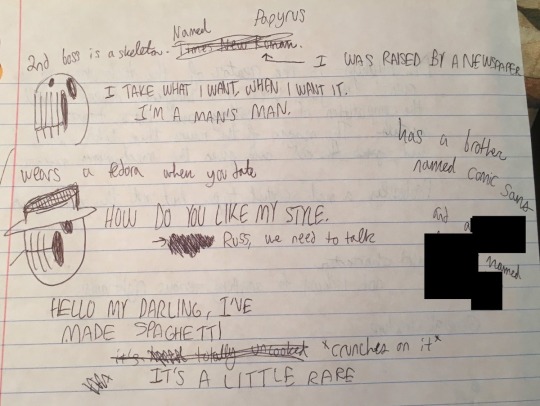 2nd boss is a skeleton. Named Papyrus
Times New Roman.
I WAS RAISED BY A NEWSPAPER
I TAKE WHAT I WANT, WHEN I WANT IT.
I'M A MAN'S MAN.
has a brother
named Comic Sans
wears a fedora when you date
HOW DO YOU LIKE MY STYLE.
and a
named
Russ, we need to talk
HELLO MY DARLING, I'VE
MADE SPAGHETTI
it's totally uncooked *crunches on it*
IT'S A LITTLE RARE